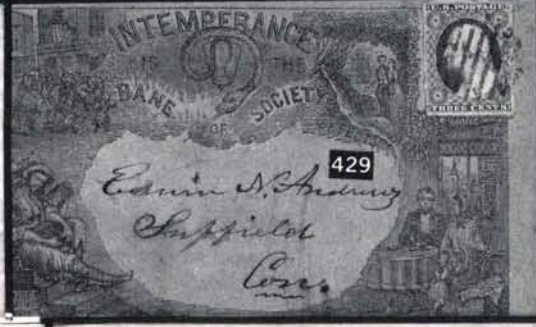 INTEMPERANCE
IS THE
BANE OF SOCIETY
U.S. POSTAGE
THREE CENTS
429
Edwin N. Andrews
Suffield
Con.